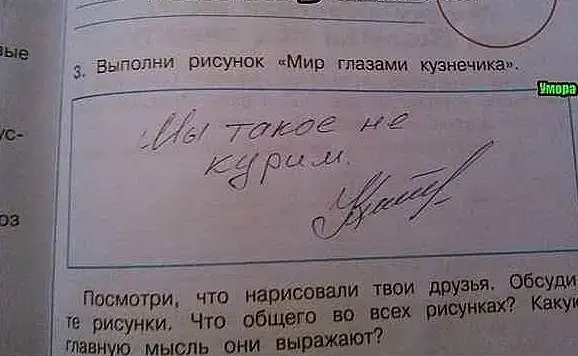 вые
3. Выполни рисунок «Мир глазами кузнечика».
Умора
ус-
Мы такое не
курим.
оз
Посмотри, что нарисовали твои друзья. Обсуди
те рисунки. Что общего во всех рисунках? Какую
главную мысль они выражают?